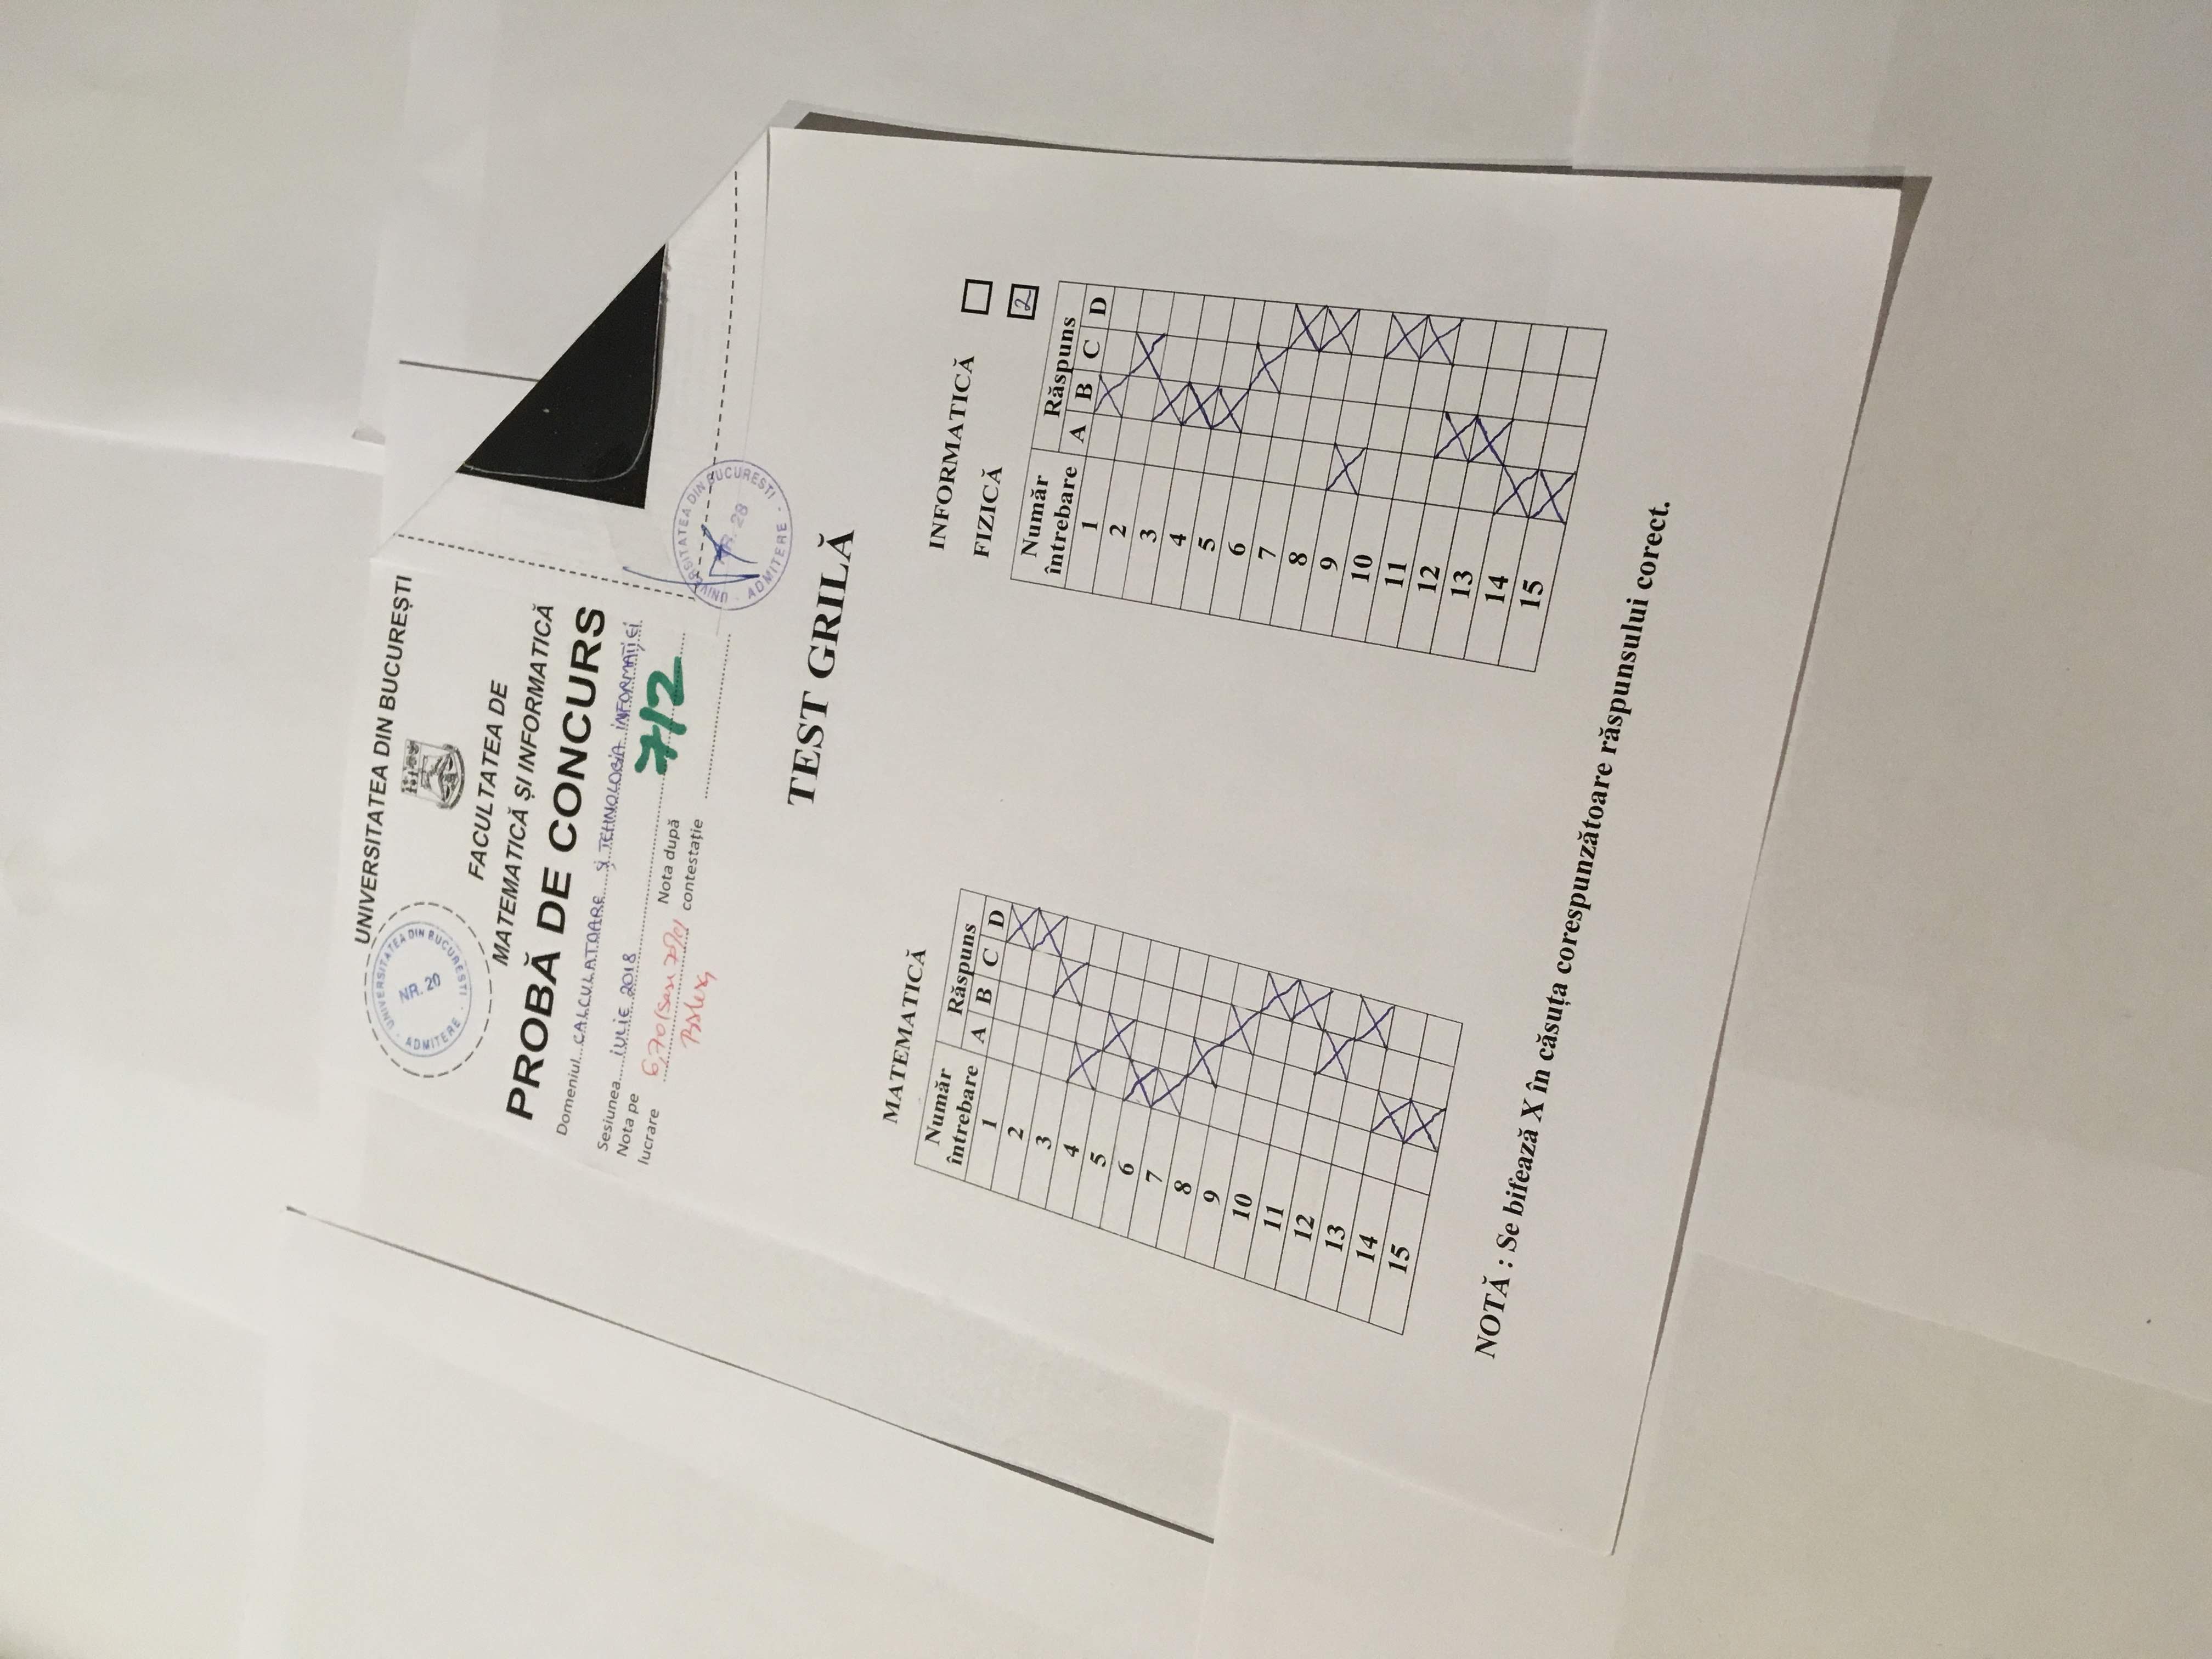 UNIVERSITATEA DIN BUCUREȘTI
UNIVERSITATEA DIN BUCURESTI - ADMITERE -
NR. 20
FACULTATEA DE
MATEMATICĂ ȘI INFORMATICĂ
PROBĂ DE CONCURS
Domeniul CALCULATOARE ȘI TEHNOLOGIA INFORMAȚIEI
Sesiunea iULIE 2018
7/2
Nota pe
lucrare 6,70 (șase 70%)
Nota după
contestație
UNIVERSITATEA DIN BUCURESTI - ADMITERE -
NR. 28
TEST GRILĂ
MATEMATICĂ
Număr
întrebare
Răspuns
A B C D
1 X
2 X
3 X
4 X
5 X
6 X
7 X
8 X
9 X
10 X
11 X
12 X
13 X
14 X
15 X
INFORMATICĂ
FIZICĂ 2
Număr
întrebare
Răspuns
A B C D
1 X
2 X
3 X
4 X
5 X
6 X
7 X
8 X
9 X
10 X
11 X
12 X
13 X
14 X
15 X
NOTĂ : Se bifează X în căsuța corespunzătoare răspunsului corect.